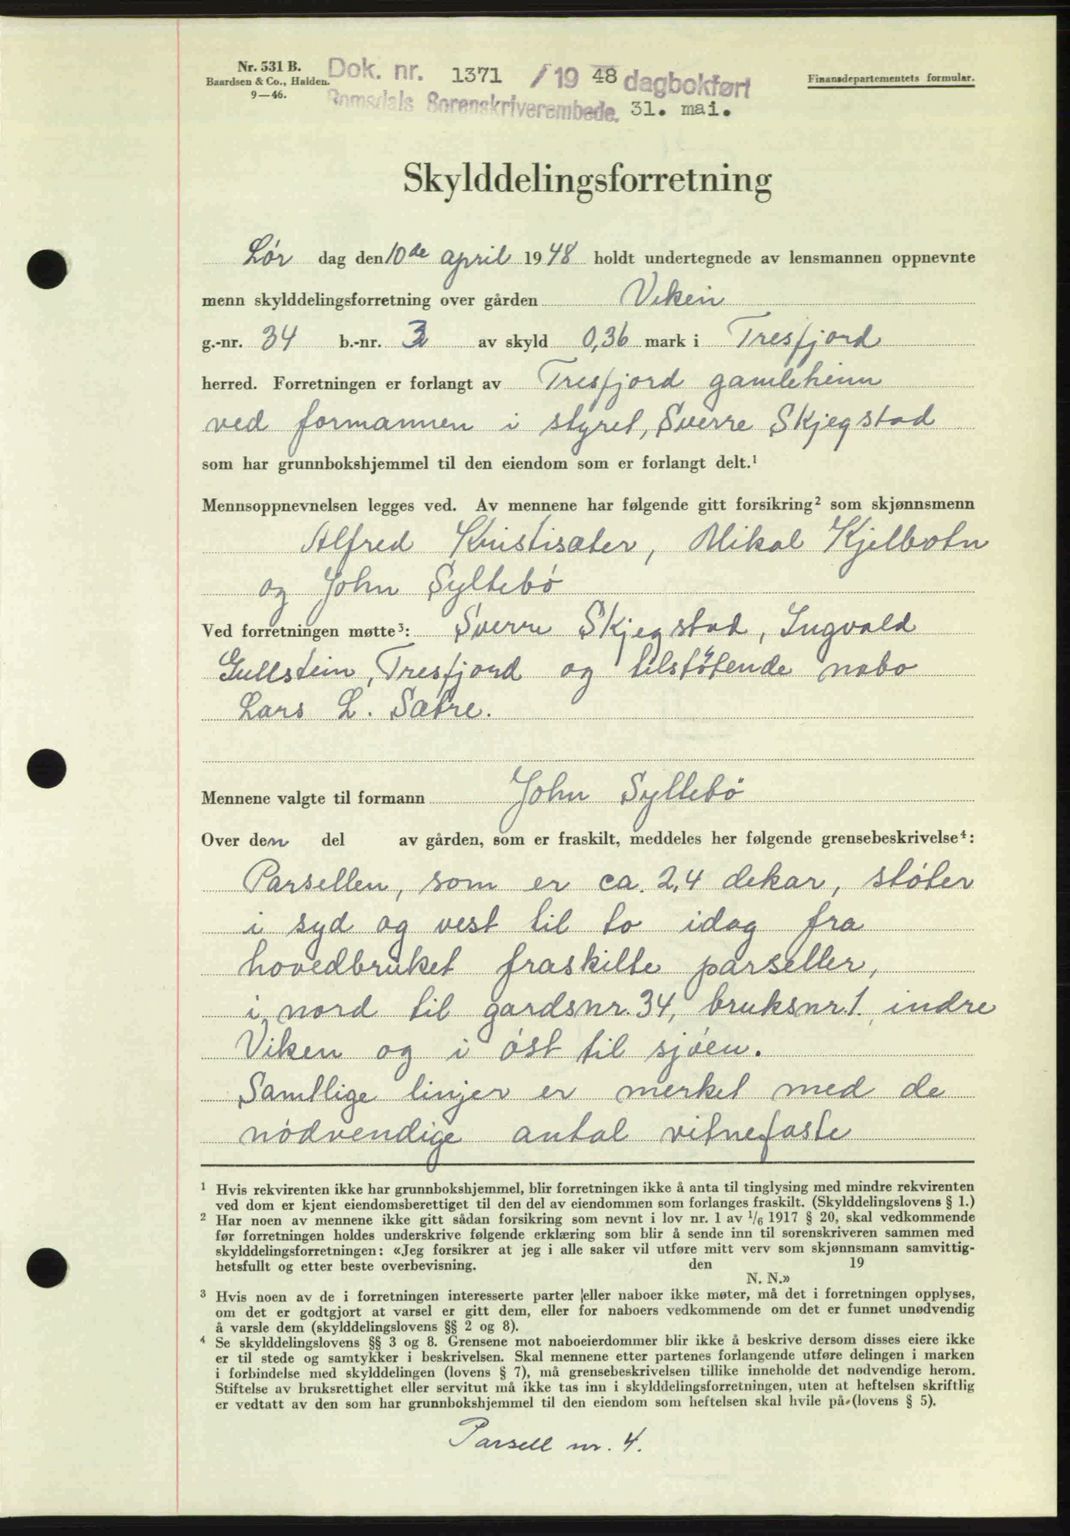 Nr. 531 B.
Baardsen & Co., Halden.
9—46.
Dok. nr. 1371 / 19 48 dagbokført
Romsdals Sorenskriverembede. 31. mai.
Finansdepartementets formular.
Skylddelingsforretning
Lør dag den 10de april 1948 holdt undertegnede av lensmannen oppnevnte
menn skylddelingsforretning over gården Viken
g.-nr. 34 b.-nr. 3 av skyld 0,36 mark i Tresfjord
herred. Forretningen er forlangt av Tresfjord gamleheim
ved formannen i styret, Sverre Skjegstad
som har grunnbokshjemmel til den eiendom som er forlangt delt.¹
Mennsoppnevnelsen legges ved. Av mennene har følgende gitt forsikring² som skjønnsmenn
Alfred Kristisæter, Mikal Kjelbotn
og John Syltebö
Ved forretningen møtte³: Sverre Skjegstad, Ingvald
Gullstein, Tresfjord og tilstötende nabo
Lars L. Sætre.
Mennene valgte til formann John Syltebö
Over den del av gården, som er fraskilt, meddeles her følgende grensebeskrivelse⁴:
Parsellen, som er ca. 2,4 dekar, stöter
i syd og vest til to idag fra
hovedbruket fraskilte parseller,
i nord til gardsnr. 34, bruksnr. 1. indre
Viken og i öst til sjöen.
Samtlige linjer er merket med de
nödvendige antal vitnefaste
¹ Hvis rekvirenten ikke har grunnbokshjemmel, blir forretningen ikke å anta til tinglysing med mindre rekvirenten
ved dom er kjent eiendomsberettiget til den del av eiendommen som forlanges fraskilt. (Skylddelingslovens § 1.)
² Har noen av mennene ikke gitt sådan forsikring som nevnt i lov nr. 1 av 1/6 1917 § 20, skal vedkommende
før forretningen holdes underskrive følgende erklæring som blir å sende inn til sorenskriveren sammen med
skylddelingsforretningen: «Jeg forsikrer at jeg i alle saker vil utføre mitt verv som skjønnsmann samvittig-
hetsfullt og etter beste overbevisning. den 19
N. N.»
³ Hvis noen av de i forretningen interesserte parter eller naboer ikke møter, må det i forretningen opplyses,
om det er godtgjort at varsel er gitt dem, eller for naboers vedkommende om det er funnet unødvendig
å varsle dem (skylddelingslovens §§ 2 og 8).
⁴ Se skylddelingslovens §§ 3 og 8. Grensene mot naboeierdommer blir ikke å beskrive dersom disses eiere ikke
er til stede og samtykker i beskrivelsen. Skal mennene etter partenes forlangende utføre delingen i marken
i forbindelse med skylddelingen (lovens § 7), må grensebeskrivelsen tillike inneholde det nødvendige herom.
Stiftelse av bruksrettighet eller servitut må ikke tas inn i skylddelingsforretningen, uten at heftelsen skriftlig
er vedtatt av den som har grunnbokshjemmel til den eiendom som heftelsen skal hvile på (lovens § 5).
Parsell nr. 4.